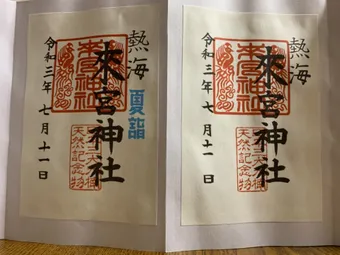 熱海
夏詣
來宮神社
來宮神社
天然記念物
令和三年七月十一日
熱海
來宮神社
來宮神社
天然記念物
令和三年七月十一日